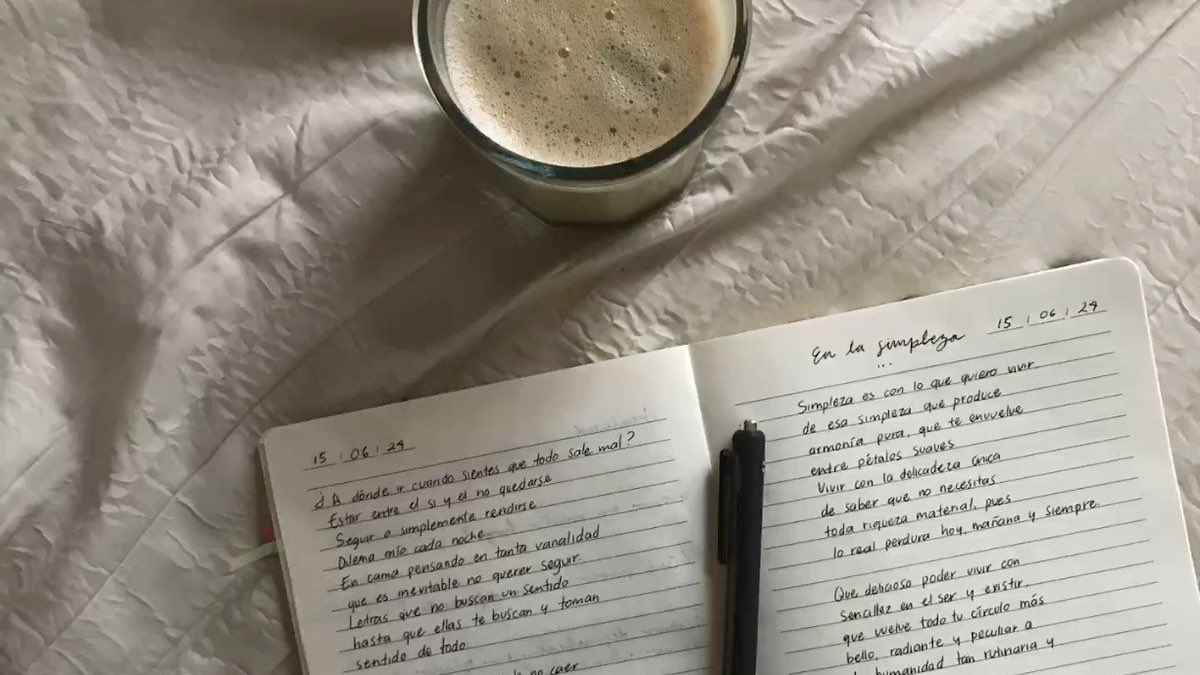 15 / 06 / 24
¿A dónde ir cuando sientes que todo sale mal?
Estar entre el si y el no quedarse
Seguir o simplemente rendirse
Dilema mío cada noche.
En cama pensando en tanta vanalidad
que es inevitable no querer seguir.
Letras que no buscan un sentido
hasta que ellas te buscan y toman
sentido de todo
no caer
15 / 06 / 24
En la simpleza
...
Simpleza es con lo que quiero vivir
de esa simpleza que produce
armonía pura, que te envuelve
entre pétalos suaves
Vivir con la delicadeza única
de saber que no necesitas
toda riqueza material, pues
lo real perdura hoy, mañana y siempre.
Que delicioso poder vivir con
sencillez en el ser y existir.
que vuelve todo tu círculo más
bello, radiante y peculiar a
humanidad tan rutinaria y